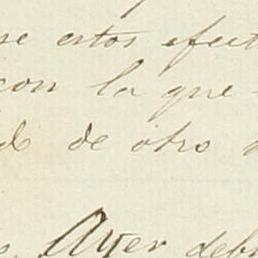 se estos efect
con la que
de otro
Ayer deb